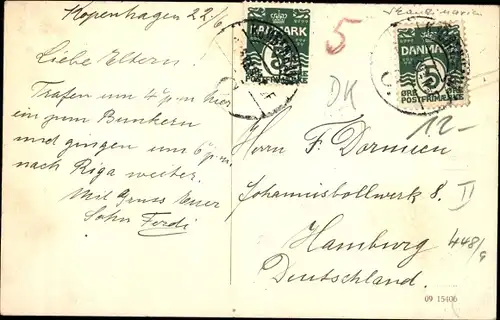 Kopenhagen 22/6
Liebe Eltern!
Trafen um 4 p.m. hier
ein zum Bunkern
und gingen um 6 p.m.
nach Riga weiter.
Mit Gruss Euer
Sohn Ferdi
DANMARK
5
DK
DANMARK
5
ØRE ØRE
POSTFRIM.
12.-
Herrn F. Dormien
Johannisbollwerk 8. II
Hamburg
448/9
Deutschland.
09 15406